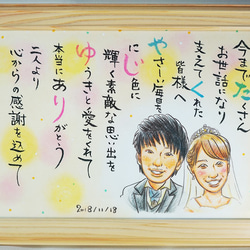 今までたくさん
お世話になり
支えてくれた
皆様へ
やさしい毎日を
にじ色に
輝く素敵な思い出を
ゆうきと愛をくれて
本当にありがとう
二人より
心からの感謝を込めて
2018/11/18